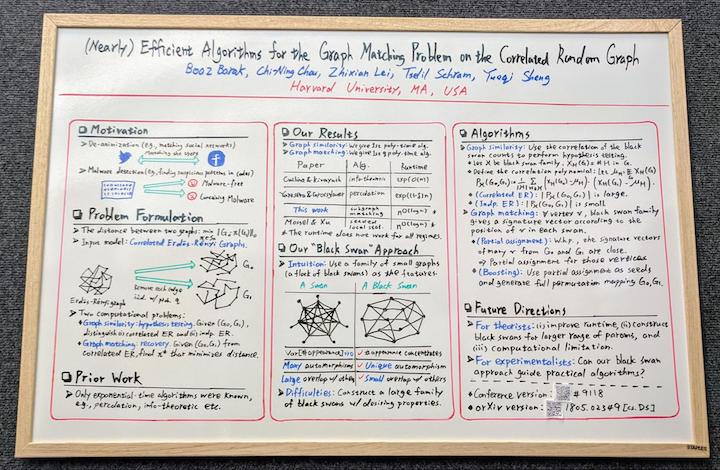 (Nearly) Efficient Algorithms for the Graph Matching Problem on the Correlated Random Graph
Boaz Barak, Chi-Ning Chou, Zhixian Lei, Tselil Schramm, Yueqi Sheng
Harvard University, MA, USA
Motivation
De-animization (e.g., matching social networks)
matching the users
Malware detection (e.g., finding suspicious patterns in codes)
Malware-free
Containing Malware
Problem Formulation
The distance between two graphs: min
Input model: Correlated Erdős-Rényi Graphs.
G₀
remove each edge
i.i.d. w/ prob.
G₁
Erdős-Rényi graph
Two computational problems:
Graph similarity: hypothesis testing. Given (G₀, G₁),
distinguish (i) correlated ER and (ii) indp. ER.
Graph matching: recovery. Given (G₀, G₁) from
correlated ER, find π* that minimizes distance.
Prior Work
Only exponential-time algorithms were known,
e.g., percolation, info-theoretic etc.
Our Results
Graph similarity: We give 1st poly-time alg.
Graph matching: We give 1st poly-time alg.
Paper Alg. Runtime
Cullina & Kiyavash info-theoretic exp(O(n))
Yartseva & Grossglauser percolation
This work subgraph matching
Mossel & Xu seeded local stat.
* The runtime does not work for all regimes.
Our "Black Swan" Approach
Intuition: Use a family of small graphs
(a flock of black swans) as the features.
A Swan A Black Swan
Var[#appearance] #appearance concentrates
Many automorphisms Unique automorphism
Large overlap w/ others Small overlap w/ others
Difficulties: Construct a large family
of black swans w/ desiring properties.
Algorithms
Graph similarity: Use the correlation of the black
swan counts to perform hypothesis testing.
Let H be black swan family, X_H(G) = # H in G.
Define the correlation polynomial:
(Correlated ER): is large.
(Indp. ER): is small.
Graph matching: ∀ vertex v, black swan family
gives a signature vector according to the
position of v in each swan.
(Partial assignment): W.h.p., the signature vectors
of many v from G₀ and G₁ are close.
⇒ Partial assignment for those vertices
(Boosting): Use partial assignment as seeds
and generate full permutation matching G₀, G₁.
Future Directions
For theorists: (i) improve runtime, (ii) construct
black swans for larger range of params, and
(iii) computational limitation.
For experimentalists: Can our black swan
approach guide practical algorithms?
Conference version: #9118
arXiv version: 1805.02349 [cs.DS]
STAPLES